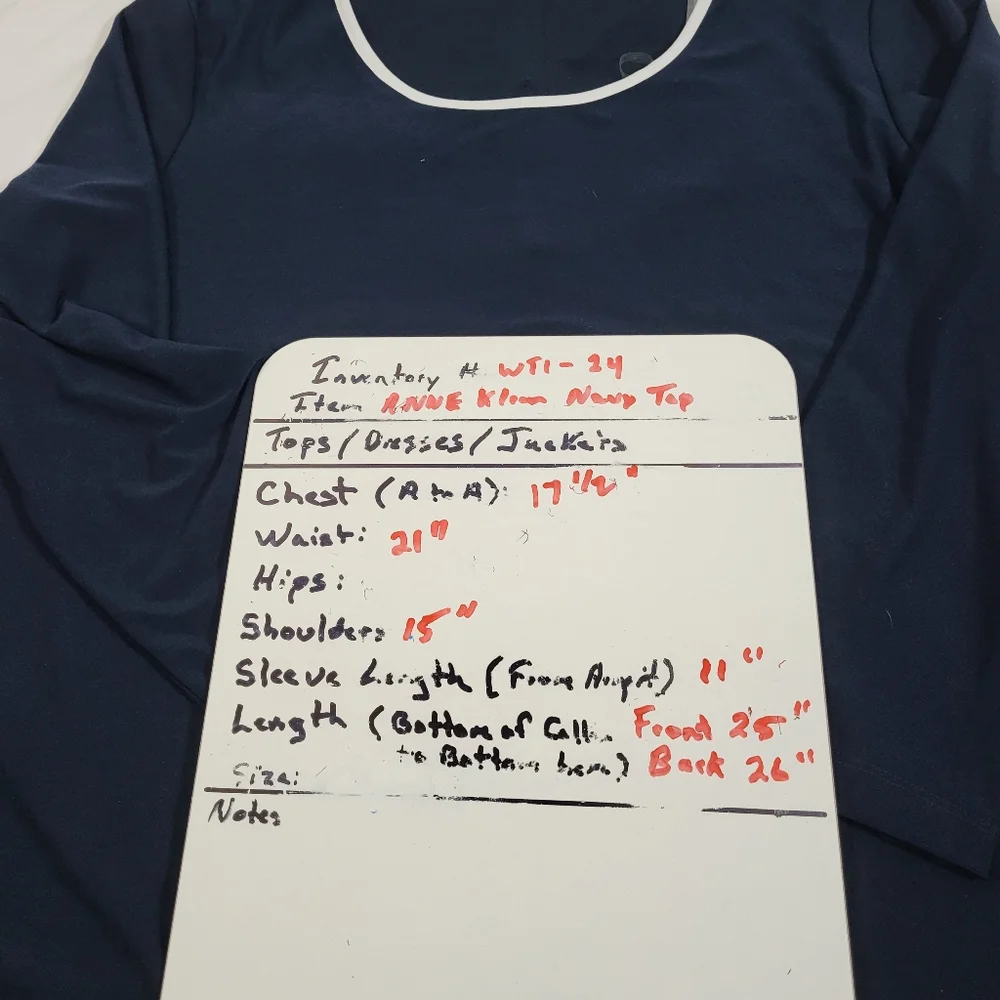 Inventory # WT1-24
Item ANNE Klein Navy Top
Tops/Dresses/Jackets
Chest (A to A): 17 1/2"
Waist: 21"
Hips:
Shoulders 15"
Sleeve Length (From Armpit) 11"
Length (Bottom of Collar Front 25"
to Bottom hem) Back 26"
Size:
Notes